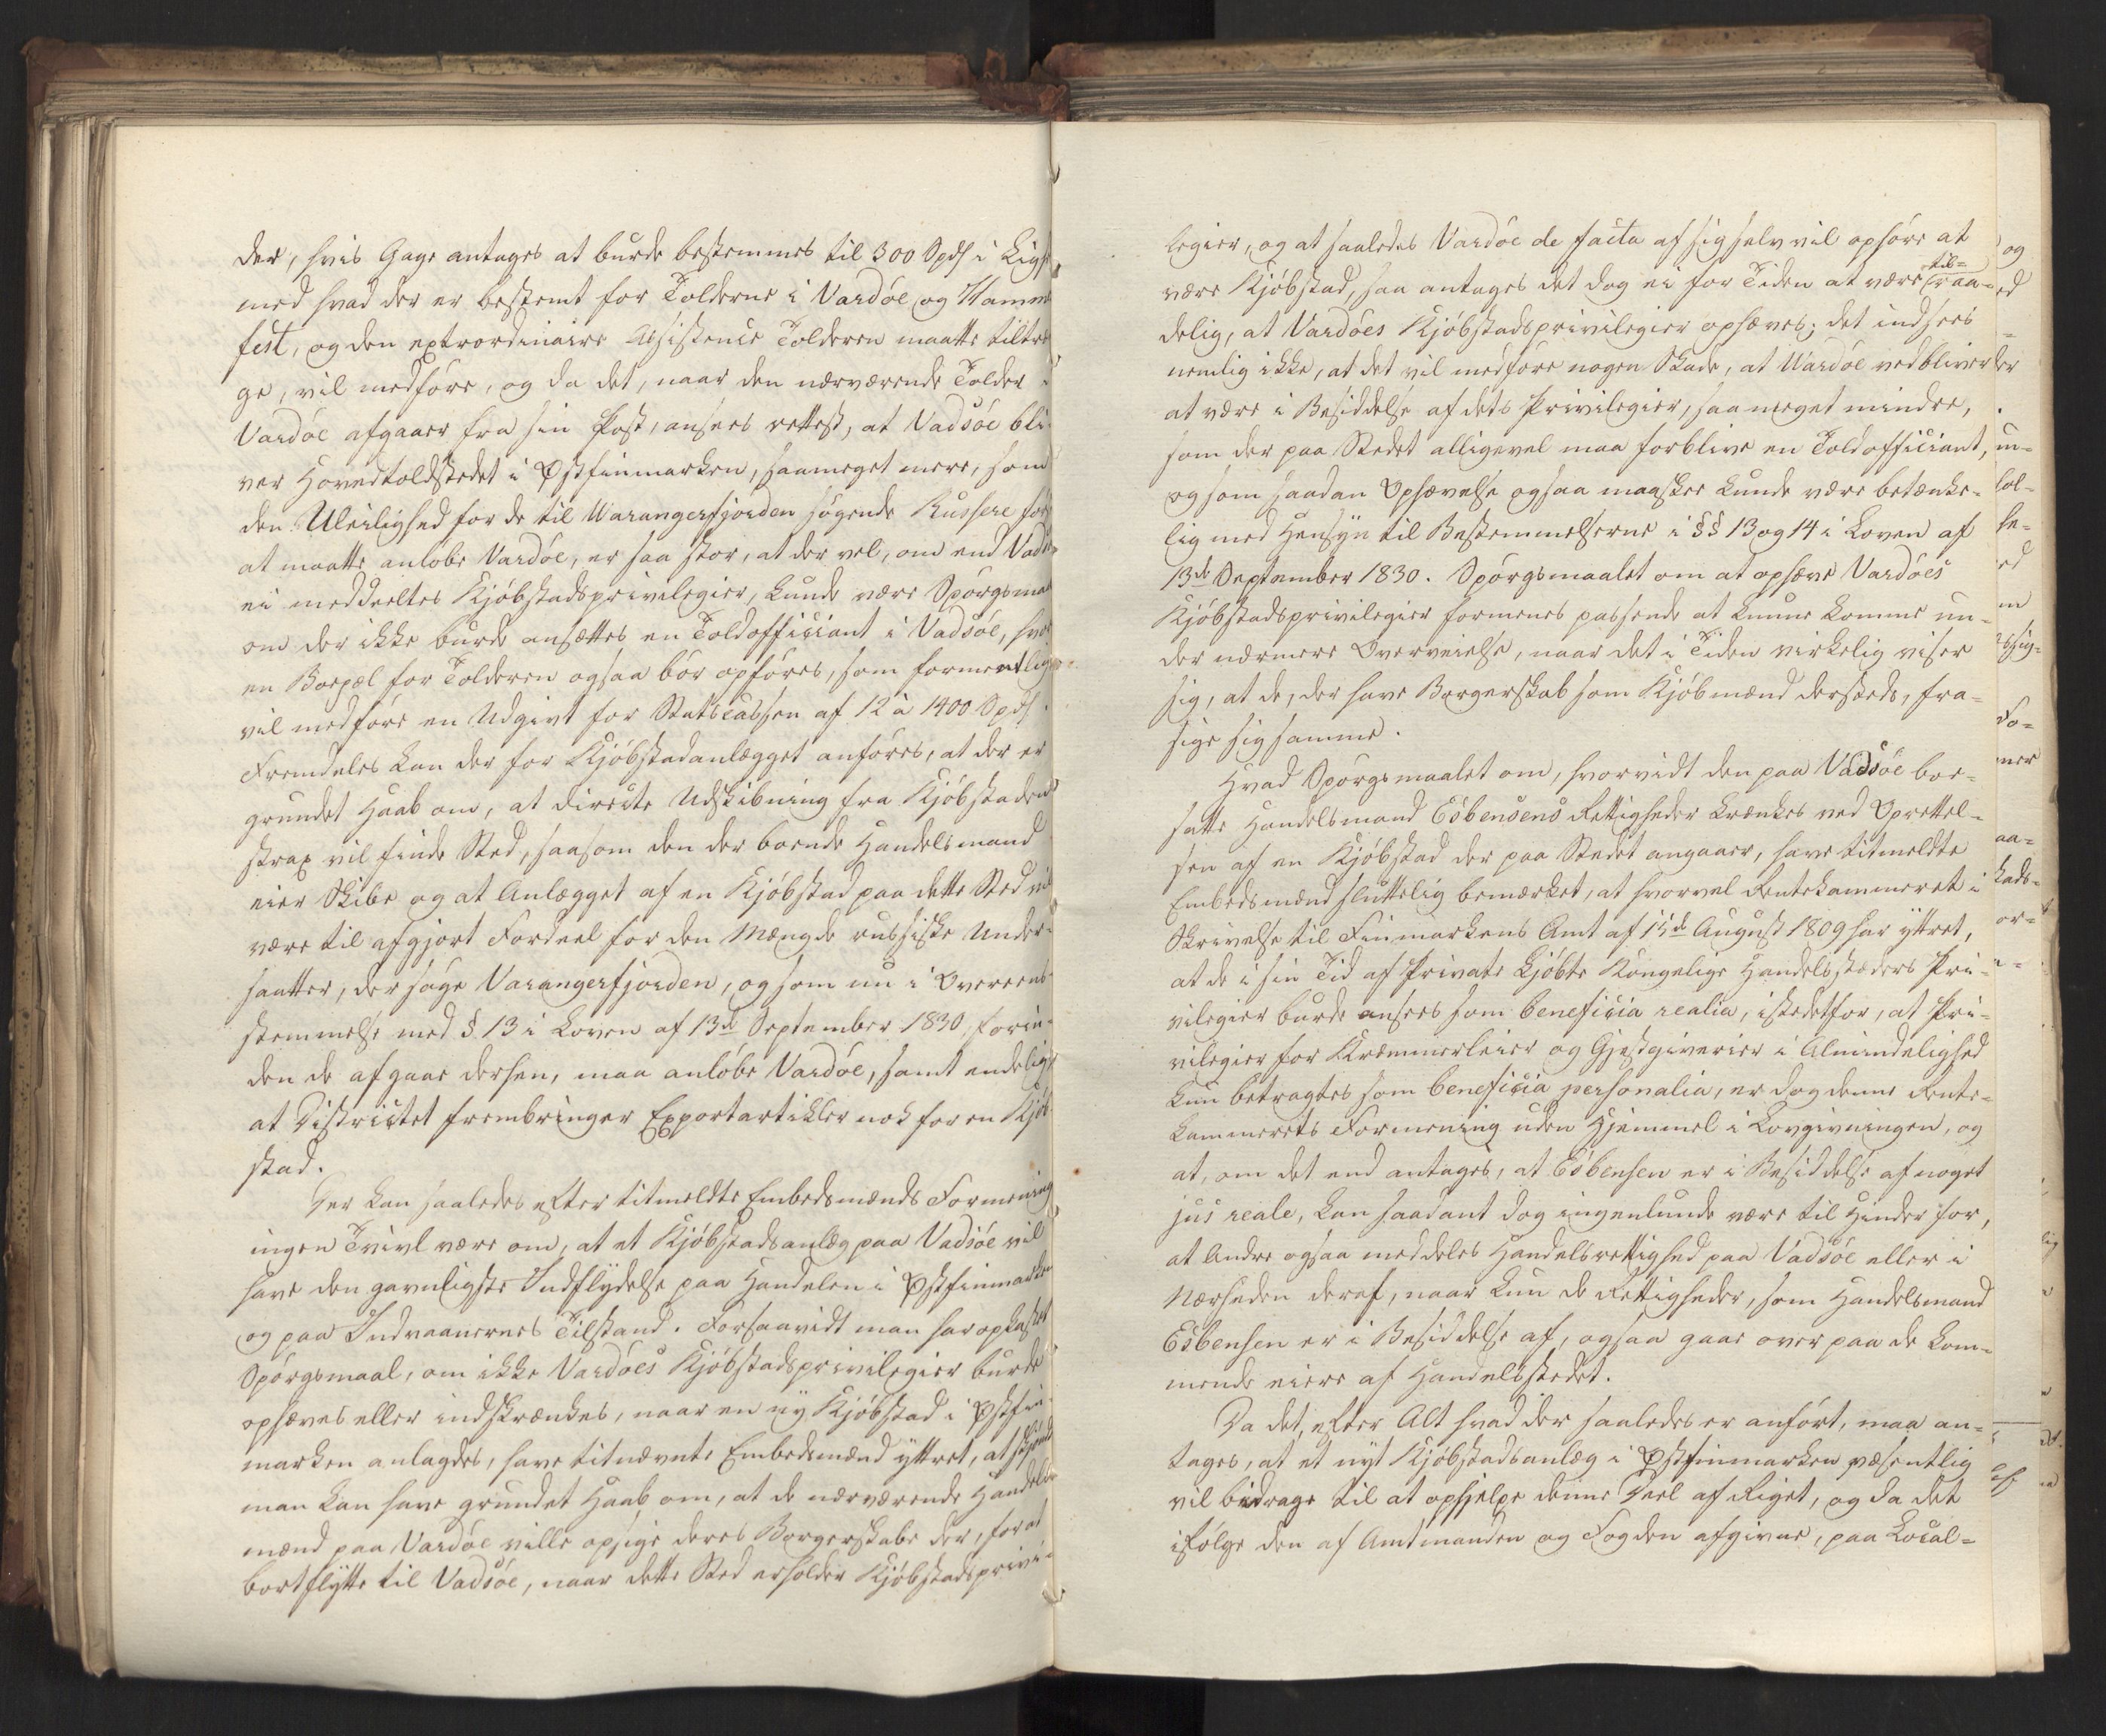 der, hvis Gage antages at burde bestemmes til 300 Spd i Lig¬
med hvad der er bestemt for Tolderne i Vardöe og Hamme
fest, og den extraordinaire Assistence Tolderen maatte tiltræ
ge, vil medföre, og da det, naar den nærværende Tolder i
Vardöe afgaaer fra sin Post, ansees rettest, at Vadsöe bli-
ver Hovedtoldstedet i Østfinmarken, saameget mere, som
den Uleilighed for de til Warangerfjorden sögende Russere for
at maatte anlöbe Vardöe, er saa stor, at der vel, om end Vadsöe
ei meddeeltes Kjöbstadsprivilegier, kunde være Spörgsmaal
om der ikke burde ansættes en Toldofficiant i Vadsöe, hvor
en Boepæl for Tolderen ogsaa bör opföres, som formentlig
vil medföre en Udgivt for Statscassen af 12 à 1400 Spd.
Fremdeles kan der for Kjöbstadanlægget anföres, at der er
grundet Haab om, at directe Udskibning fra Kjöbstaden
strax vil finde Sted, saasom den der boende Handelsmand
eier Skibe og at Anlægget af en Kjöbstad paa dette Sted vil
være til afgjort Fordeel for den Mængde russiske Under-
saatter, der söge Varangerfjorden, og som nu i Overeens-
stemmelse med § 13 i Loven af 13de September 1830, forin-
den de afgaae derhen, maa anlöbe Vardöe, samt endelig
at Districtet frembringer Exportartikler nok for en Kjöb
stad.
Der kan saaledes efter titmeldte Embedsmænds Formening
ingen Tvivl være om, at et Kjöbstadsanlæg paa Vadsöe vil
have den gavnligste Indflydelse paa Handelen i Østfinmarken
og paa Indvaanernes Tilstand. Forsaavidt man har opkastet
Spörgsmaal, om ikke Vardöes Kjöbstadsprivilegier burde
ophæves eller indskrænkes, naar en ny Kjöbstad i Østfin-
marken anlagdes, have titnævnte Embedsmænd yttret, at skjöndt
man kan have grundet Haab om, at de nærværende Handels-
mænd paa Vardöe ville opsige deres Borgerskabe der, for at
bortflytte til Vadsöe, naar dette Sted erholder Kjöbstadsprivi-
legier, og at saaledes Vardöe de facta af sig selv vil ophöre at
være Kjöbstad, saa antages det dog ei for Tiden at være til=
raa-
delig, at Vardöes Kjöbstadsprivilegier ophæves; det indsees
nemlig ikke, at det vil medföre nogen Skade, at Vardöe vedbliver
at være i Besiddelse af dets Privilegier, saa meget mindre,
som der paa Stedet alligevel maa forblive en Toldofficiant,
og som saadan Ophævelse ogsaa maaskee kunde være betænke-
lig med Hensyn til Bestemmelserne i §§ 13 og 14 i Loven af
13de September 1830. Spörgsmaalet om at ophæve Vardöes
Kjöbstadsprivilegier formenes passende at kunne komme un-
der nærmere Overveielse, naar det i Tiden virkelig viser
sig, at de, der have Borgerskab som Kjöbmænd dersteds, fra-
sige sig samme.
Hvad Spörgsmaalet om, hvorvidt den paa Vadsöe boe-
satte Handelsmand Esbensens Rettigheder krænkes ved Oprettel-
sen af en Kjöbstad der paa Stedet angaaer, have titmeldte
Embedsmænd sluttelig bemærket, at hvorvel Rentekammeret i
Skrivelse til Finmarkens Amt af 15de August 1809 har yttret,
at de i sin Tid af Private kjöbte Kongelige Handelsstæders Pri-
vilegier burde ansees som beneficia realia, istedetfor, at Pri-
vilegier for Kræmmerleier og Gjestgiverier i Almindelighed
kun betragtes som beneficia personalia, er dog denne Rente-
kammerets Formening uden Hjemmel i Lovgivningen, og
at, om det end antages, at Esbensen er i Besiddelse af noget
jus reale, kan saadant dog ingenlunde være til Hinder for,
at Andre ogsaa meddeles Handelsrettighed paa Vadsöe eller i
Nærheden deraf, naar kun de Rettigheder, som Handelsmand
Esbensen er i Besiddelse af, ogsaa gaae over paa de kom-
mende eiere af Handelsstedet.
Da det, efter Alt hvad der saaledes er anfört, maa an-
tages, at et nyt Kjöbstadsanlæg i Østfinmarken væsentlig
vil bidrage til at ophjelpe denne Deel af Riget, og da det
ifölge den af Amtmanden og Fogden afgivne, paa Local=